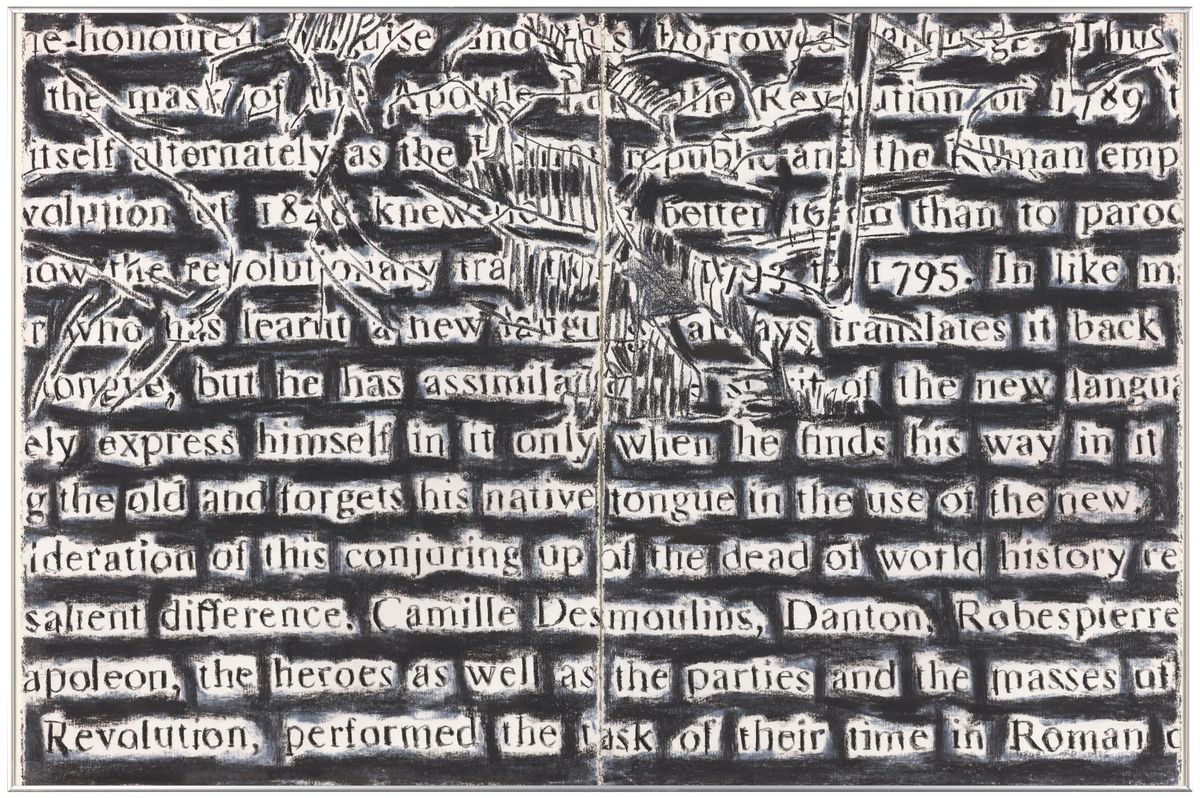 e-honoured guise and this borrowed language. Thus
the mask of the Apostle Paul the Revolution of 1789 t
itself alternately as the Roman republic and the Roman emp
volution of 1848 knew no better to do than to paroc
now the revolutionary tra 1793 to 1795. In like m
r who has learnt a new langu always translates it back
tongue, but he has assimila the spirit of the new langua
ely express himself in it only when he finds his way in it
g the old and forgets his native tongue in the use of the new.
ideration of this conjuring up of the dead of world history re
salient difference. Camille Desmoulins, Danton, Robespierre
apoleon, the heroes as well as the parties and the masses of
Revolution, performed the task of their time in Roman c